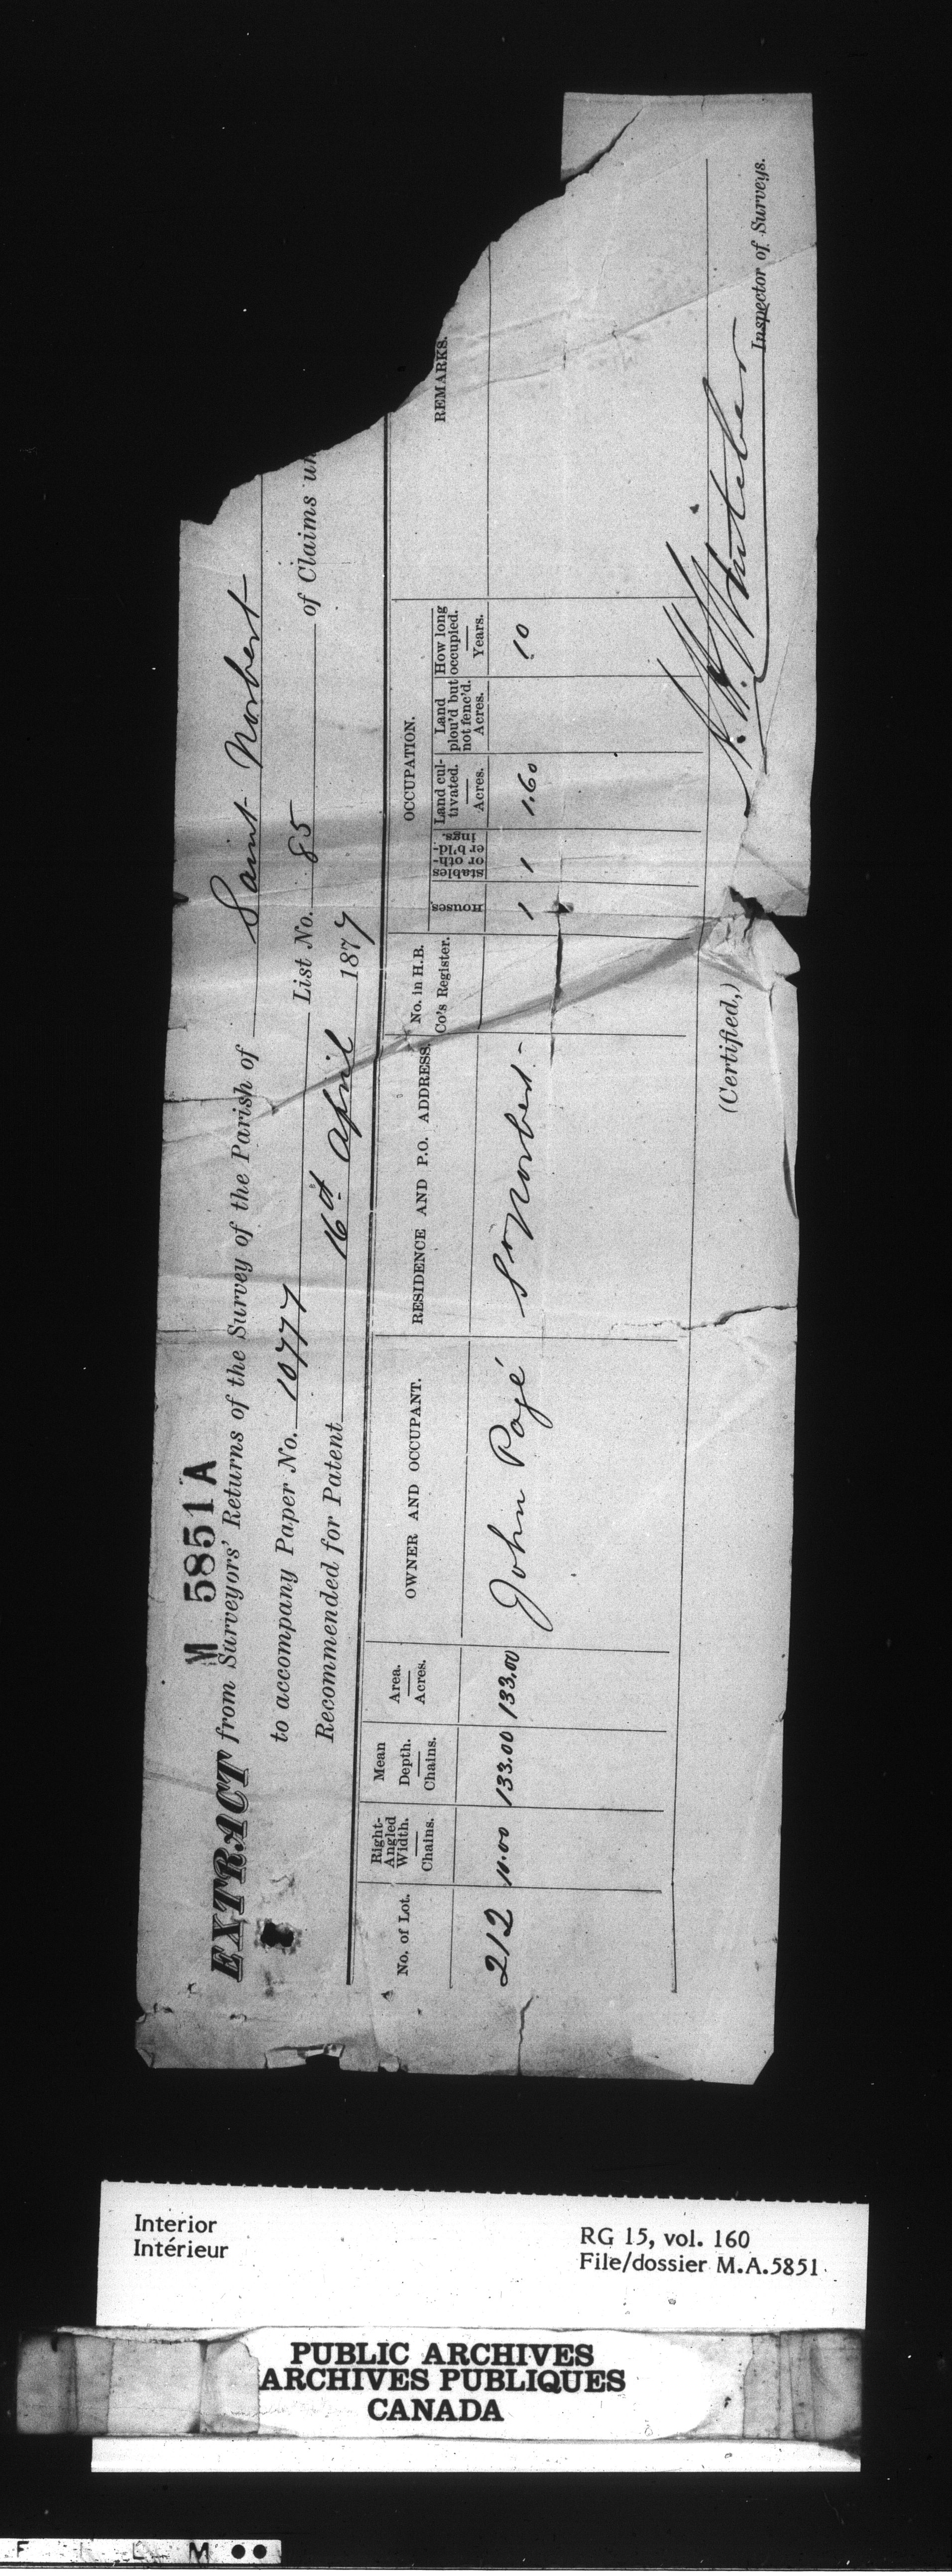 M 5851 A
EXTRACT from Surveyors' Returns of the Survey of the Parish of Saint Norbert
to accompany Paper No. 10777 List No. 85 of Claims un
Recommended for Patent 16th April 1877
No. of Lot. Right-Angled Width. Chains. Mean Depth. Chains. Area. Acres. OWNER AND OCCUPANT. RESIDENCE AND P.O. ADDRESS. No. in H.B. Co's Register. OCCUPATION. Houses. stables or oth-er b'ld-ings. Land cul-tivated. Acres. Land plou'd but not fenc'd. Acres. How long occupied. Years. REMARKS.
212 11.00 133.00 133.00 John Pagé St Norbert 1 1 1.60 10
(Certified,)
Inspector of Surveys.
Interior
Intérieur
RG 15, vol. 160
File/dossier M.A.5851
PUBLIC ARCHIVES
ARCHIVES PUBLIQUES
CANADA
F I L M